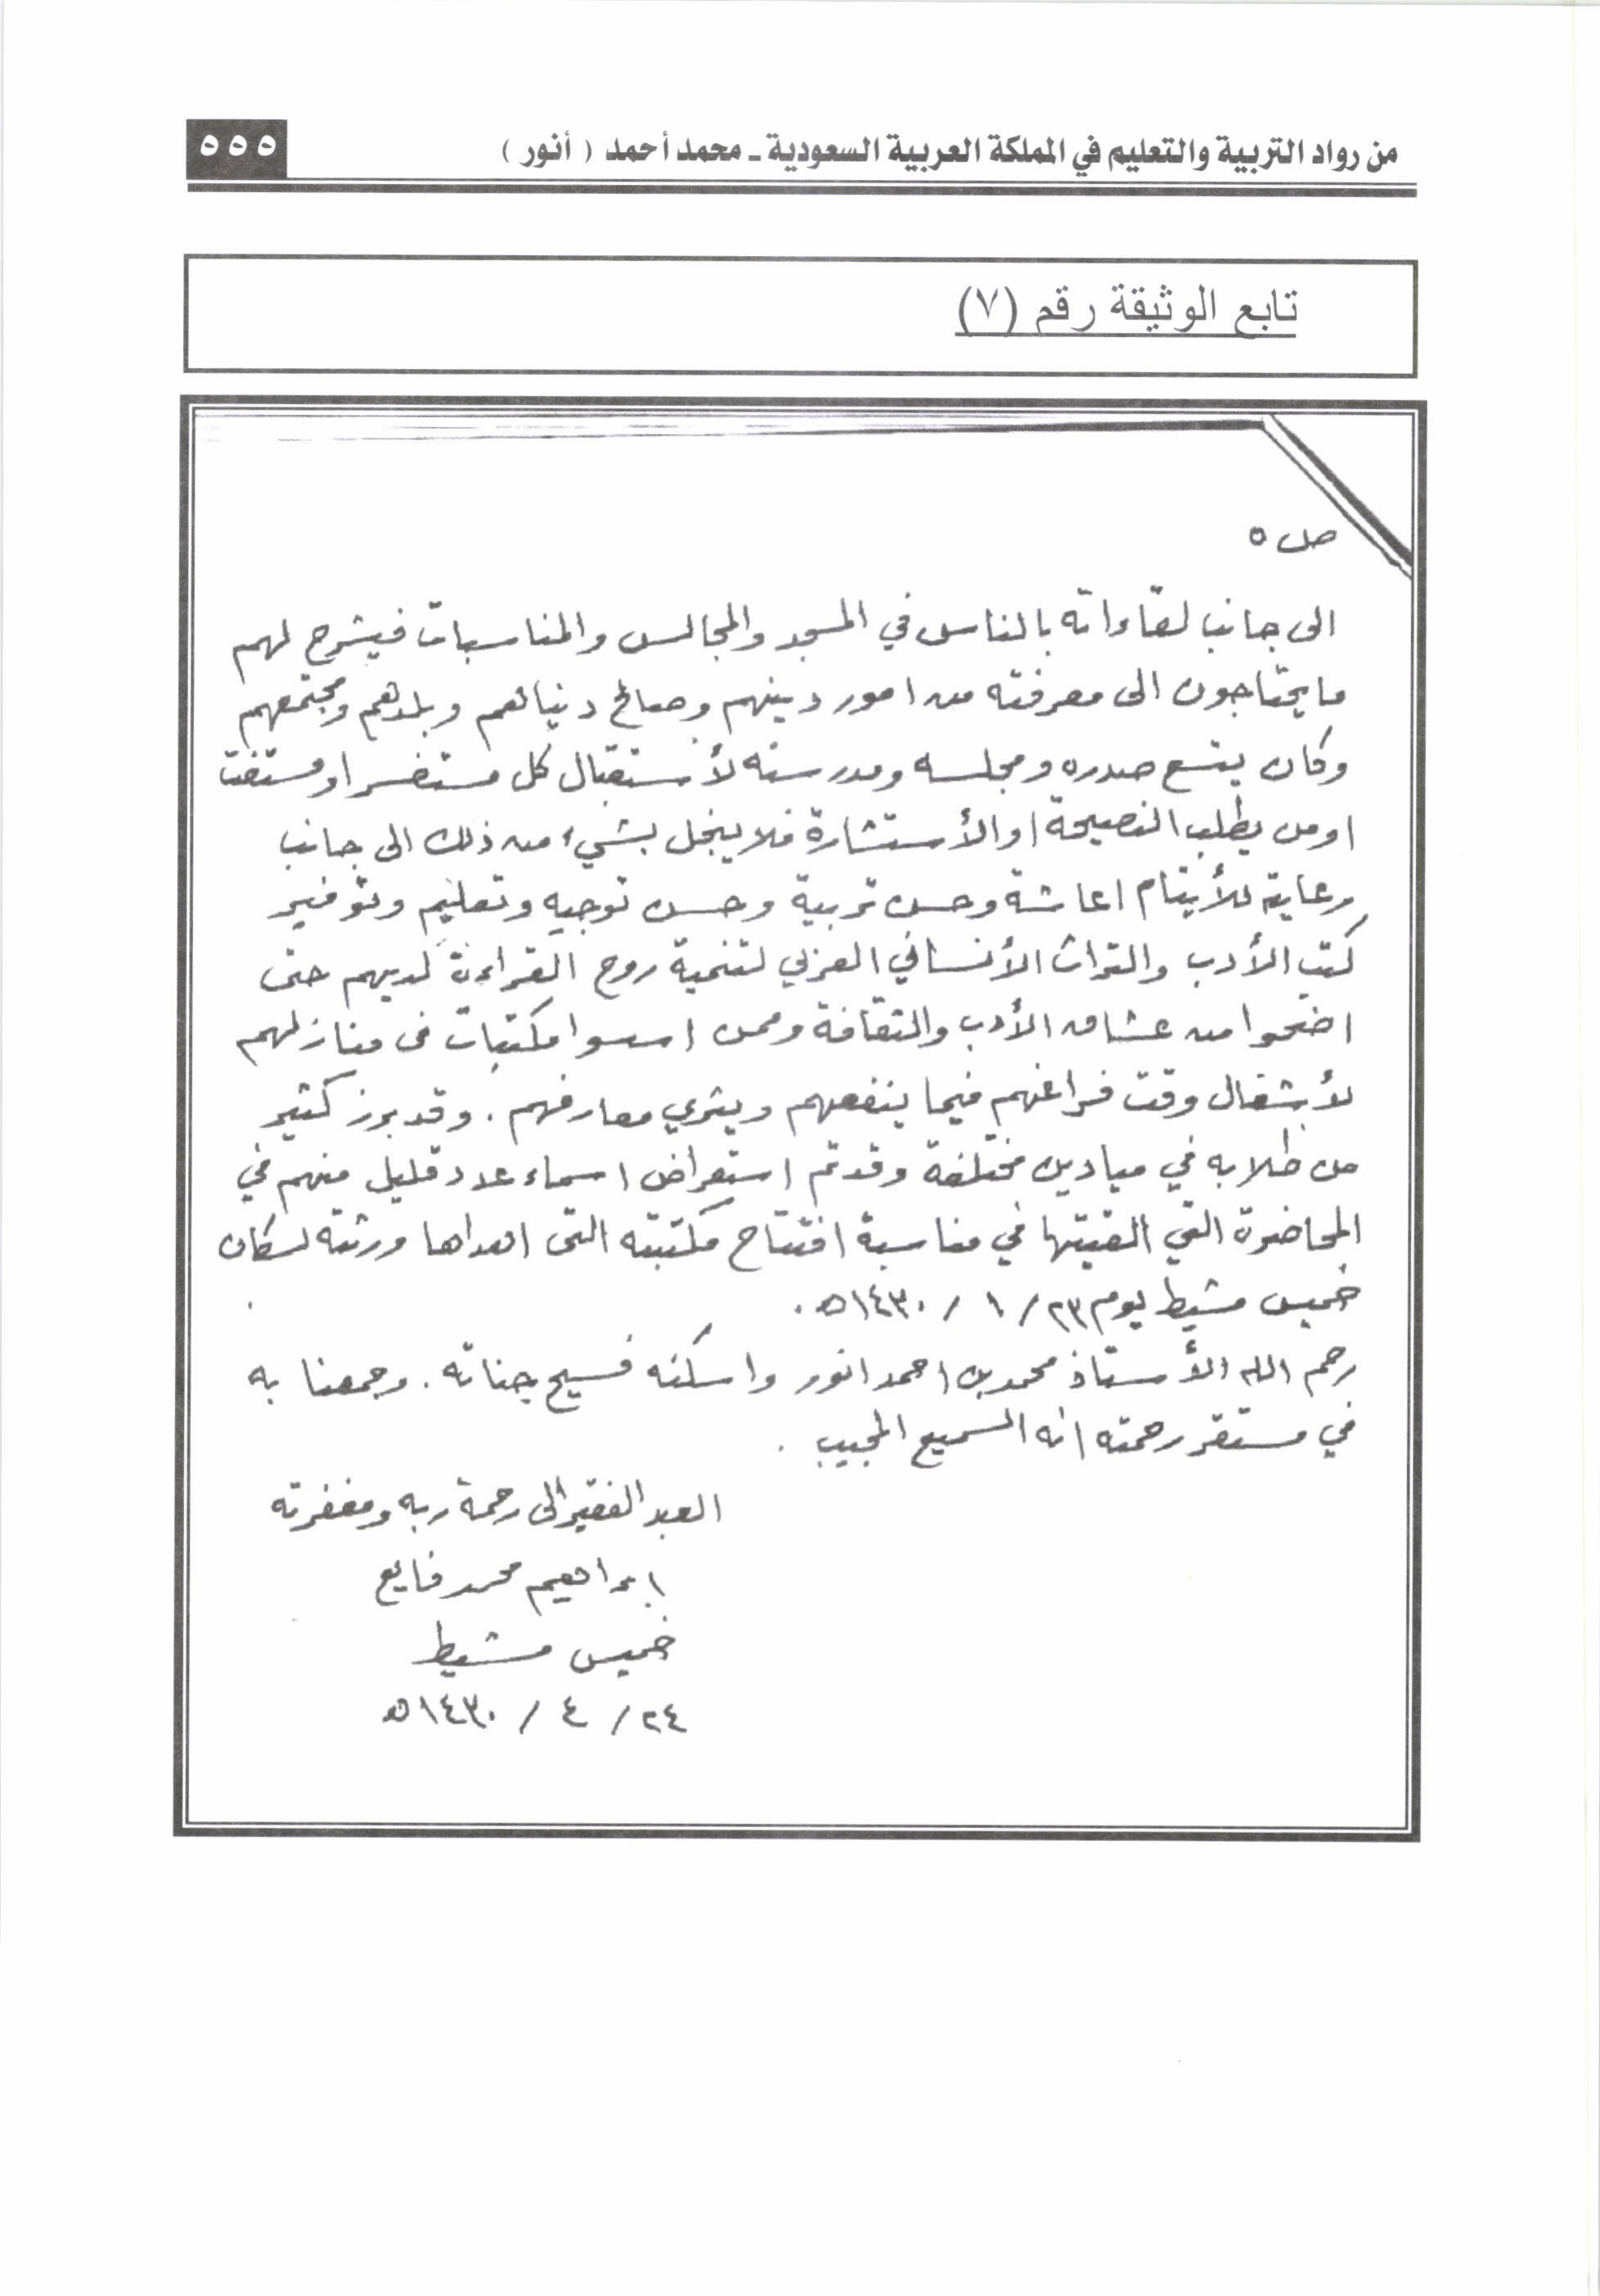 من رواد التربية والتعليم في المملكة العربية السعودية ـ محمد أحمد ( أنور )
٥٥٥
تابع الوثيقة رقم (٧)
ص ٥
الى جانب لقاءاته بالناس في المسجد والمجالس والمناسبات فيشرح لهم
ما يحتاجون الى معرفته من امور دينهم وصالح دنياهم وبلدهم ومجتمعهم
وكان يتسع صدره ومجلسه ومدرسته لأستقبال كل مستفسر او مستفت
او من يطلب النصيحة او الأستشارة فلا يبخل بشيء من ذلك الى جانب
رعاية للأيتام اعاشة وحسن تربية وحسن توجيه وتعليم وتوفير
كتب الأدب والتراث الأنساني العربي لتنمية روح القراءة لديهم حتى
اضحوا من عشاق الأدب والثقافة وممن اسسوا مكتبات في منازلهم
لأشغال وقت فراغهم فيما ينفعهم ويثري معارفهم . وقد برز كثير
من طلابه في ميادين مختلفة وقد تم استعراض اسماء عدد قليل منهم في
المحاضرة التي القيتها في مناسبة افتتاح مكتبته التى اهداها ورثته لسكان
خميس مشيط يوم ٢٣ / ١ / ١٤٣٠هـ .
رحم الله الأستاذ محمد بن احمد انور واسكنه فسيح جناته . وجمعنا به
في مستقر رحمته انه السميع المجيب .
العبد الفقير الى رحمة ربه ومغفرته
ابراهيم محمد فايع
خميس مشيط
٢٤ / ٤ / ١٤٣٠هـ